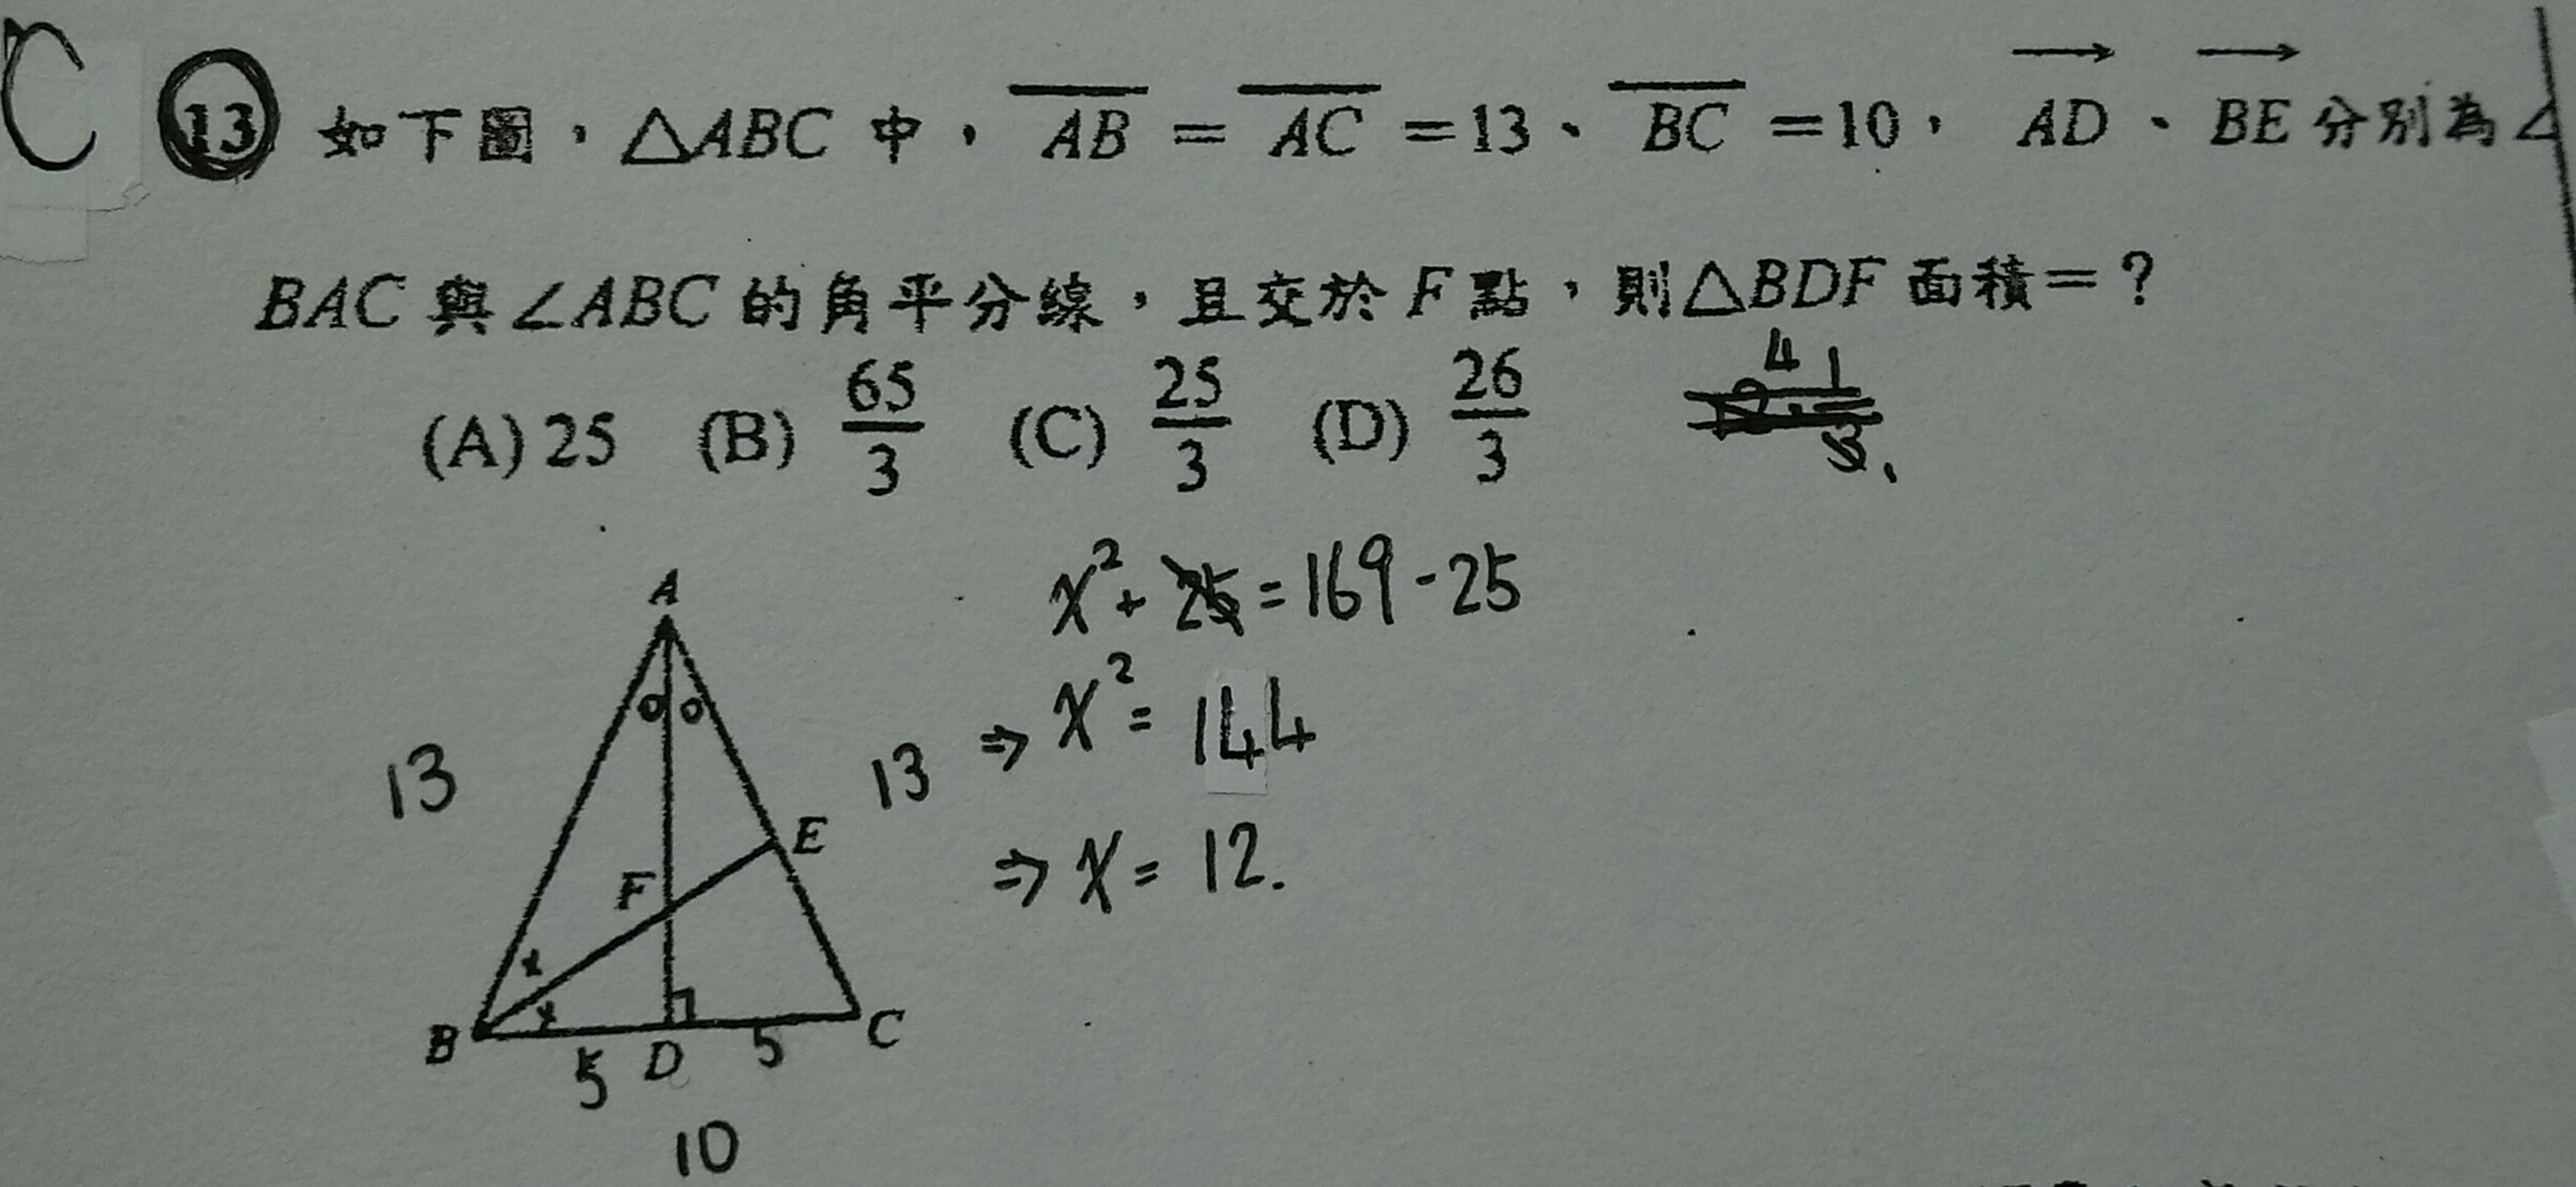 C 13 如下圖，△ABC 中，AB = AC =13、BC =10，AD、BE 分別為∠
BAC 與∠ABC 的角平分線，且交於 F 點，則△BDF 面積=？
(A) 25 (B) 65/3 (C) 25/3 (D) 26/3
4 1
3.
A
x²+ 25 = 169 - 25
⇒ x² = 144
13 13
⇒ x = 12.
E
F
x
x
B D C
5 5
10